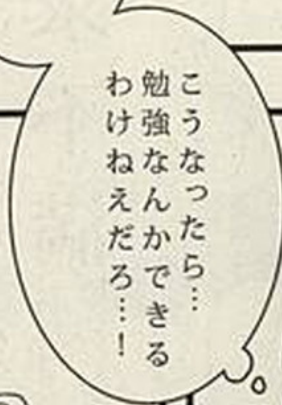 こうなったら…
勉強なんかできる
わけねえだろ…！